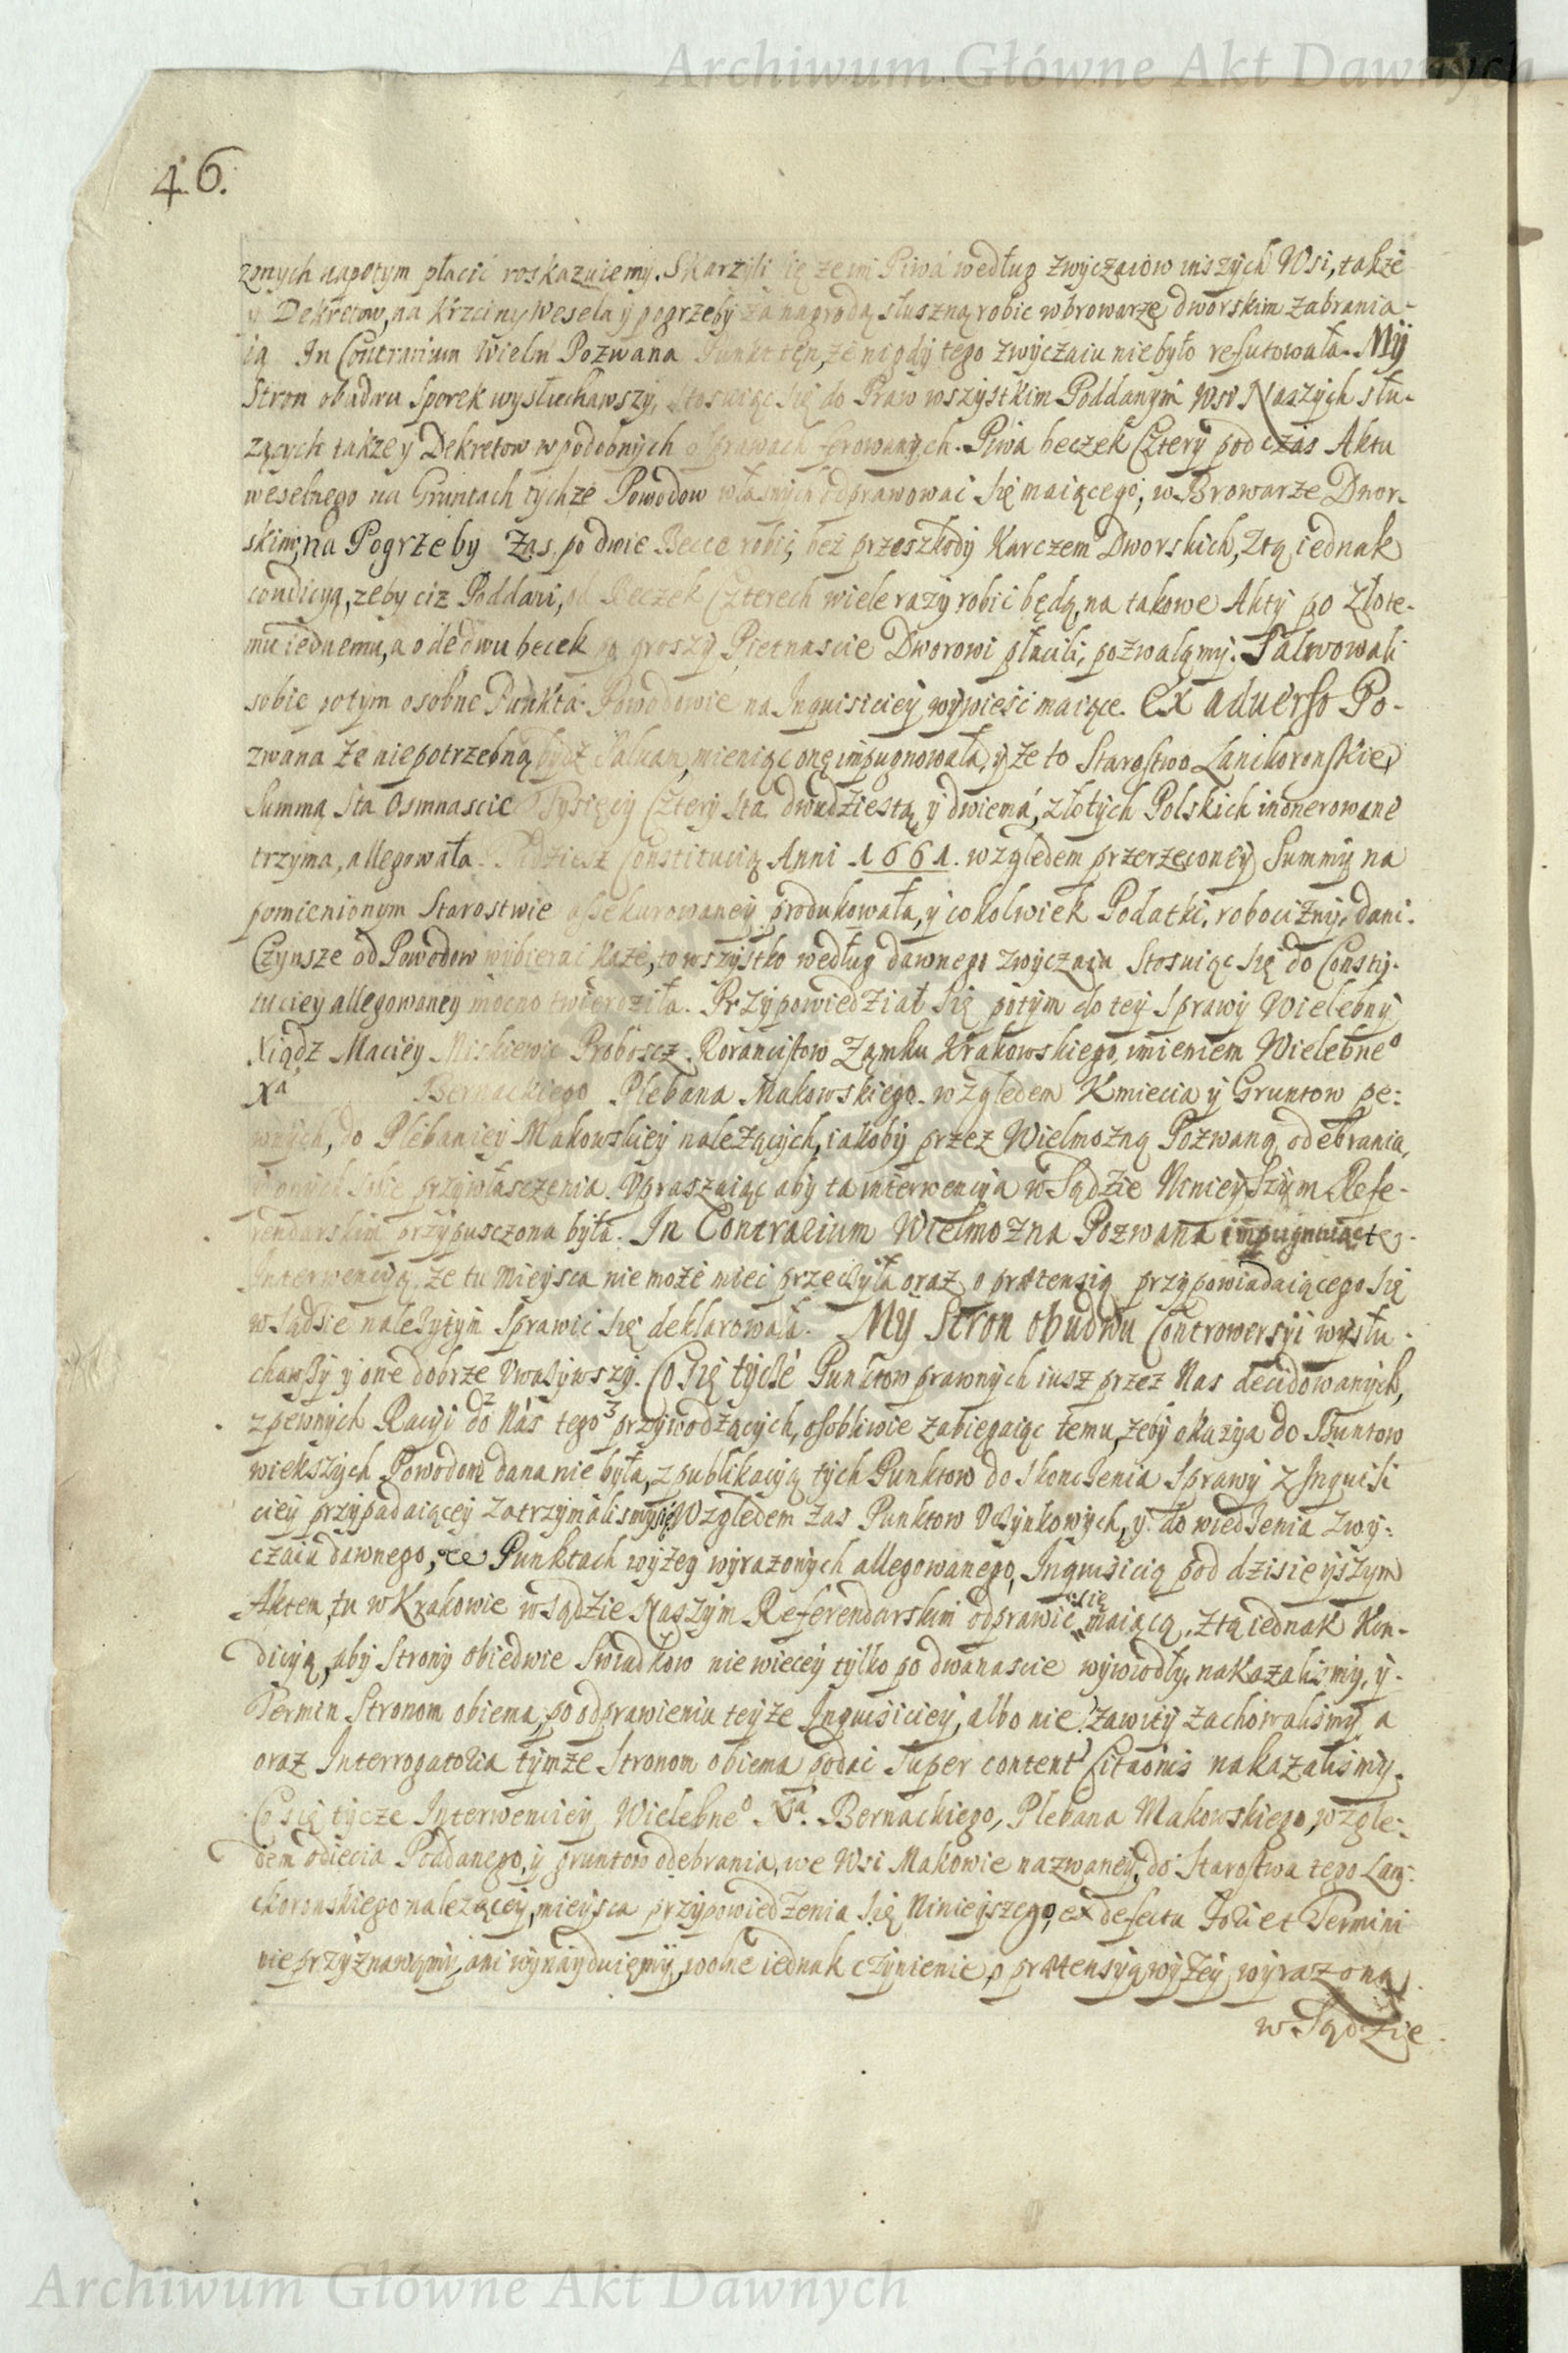 Archiwum Główne Akt Dawnych
46.
zonych napotym płacić roskazuiemy. Skarżyli się że im Piwa według zwyczaiow inszych Wsi, także
y Dekretow, na Krzciny Wesela y pogrzeby za nagrodą słuszną robic w browarze dworskim zabrania-
ią In Contrarium Wielm Pozwana Punkt ten, że nigdy tego zwyczaiu niebyło refutowała. My
Stron obudwu Sporek wysłuchawszy, stosuiąc się do Praw wszystkim Poddanym Wsi Naszych słu-
zących także y Dekretow w podobnych sprawach ferowanych. Piwa beczek Cztery podczas Aktu
weselnego na Gruntach tychże Powodow własnych odprawować się maiącego, w Browarze Dwor-
skim, na Pogrzeby zas po dwie Becce robić, bez przeszkody Karczem Dworskich, z tą iednak
condicyą, żeby ciż Poddani, od Beczek Czterech wiele razy robić będą, na takowe Akty po złote-
mu iednemu, a ode dwu becek po groszy Pietnascie Dworowi płacili, pozwalamy. Salwowali
sobie potym osobne Punkta Powodowie na Inquisiciey wywieść maiące. Ex aduerso Po-
zwana że niepotrzebną bydź Saluam, mieniąc onę impugnowała, y że to Starostwo Lanckoronskie
Summą Sta Osmnascie Tysięcy Cztery Sta dwudziestą y dwiema, złotych Polskich inonerowane
trzyma, allegowała. Tudziesz Constitucią Anni 1661. względem przerzeconey Summy na
pomienionym Starostwie assekurowaney produkowała, y cokolwiek Podatki, robocizny, dani
Czynsze od Powodow wybierać każe, to wszystko według dawnego zwyczaiu Stosuiąc się do Consty-
tuciey allegowaney mocno twierdziła. Przypowiedział się potym do tey Sprawy Wielebny
Xiądz Maciey Miskiewic Proboszcz Rorancistow Zamku Krakowskiego, imieniem Wielebneo
Xa Bernackiego Plebana Makowskiego względem Kmiecia y Gruntow pe-
wnych, do Plebaniey Makowskiey należących, iakoby przez Wielmożną Pozwaną odebrania,
y onych sobie przywłasczenia. Upraszaiąc aby ta interwencya w Sądzie Ninieyszym Refe-
rendarskim przypusczona była. In Contrarium Wielmożna Pozwana impugnuiąc tę
Interwencyą, że tu mieysca nie może mieć przeczyła oraz o prætensią przypowiadaiącego się
w Sądzie należytym sprawić się deklarowała. My Stron obudwu Controwersyi wysłu-
chawszy y one dobrze uważywszy. Co się tycze Punktow prawnych iusz przez Nas decidowanych,
z pewnych Racyi do Nas tego przywodzących, osobliwie zabiegaiąc temu, żeby okazya do Buntow
wiekszych Powodom dana nie była, z publikacyą tych Punktow do skonczenia Sprawy z Inquisi
ciey przypadaiącey zatrzymalismy się Względem zas Punktow Uczynkowych, y do wiedzenia zwy-
czaiu dawnego, we Punktach wyżey wyrażonych allegowanego, Inquisicią pod dzisieyszym
Aktem, tu w Krakowie w Sądzie Naszym Referendarskim odprawić się maiącą, z tą iednak Kon-
dicyą, aby Strony obiedwie Swiadkow nie wiecey tylko po dwanascie wywiodły, nakazalismy, y
Termin Stronom obiema, po odprawieniu teyże Inquisiciey, albo nie, zawity zachowalismy a
oraz Interrogatoria tymże Stronom obiema podać Super content Citaonis nakazalismy.
Co się tycze Interwenciey Wielebneo Xa. Bernackiego, Plebana Makowskiego, wzglę-
dem odięcia Poddanego, y gruntow odebrania, we Wsi Makowie nazwaney, do Starostwa tego Lanc-
koronskiego należącey, mieysca przypowiedzenia się Ninieyszego, ex defectu Fori et Termini
nie przyznawamy, ani wynayduiemy, wolne iednak czynienie, o prætensyą wyżey wyrażoną
w Sądzie
Archiwum Główne Akt Dawnych